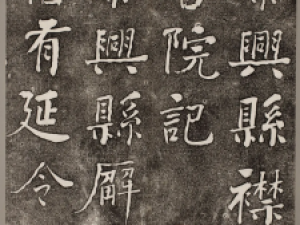 興縣襟
院記
興縣廨
有延令